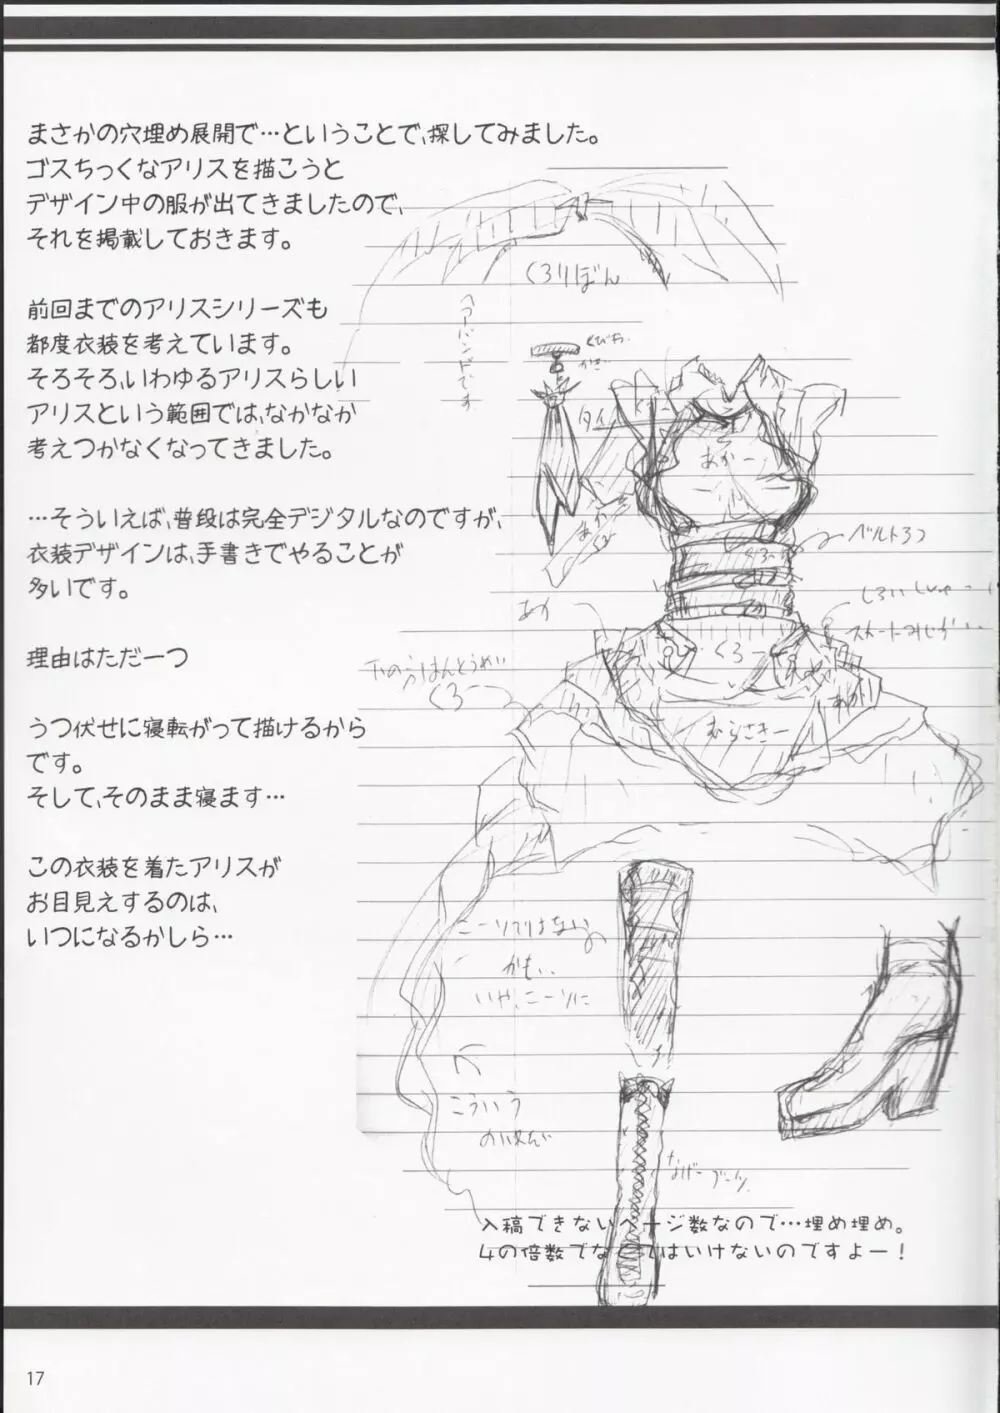 まさかの穴埋め展開で…ということで、探してみました。
ゴスちっくなアリスを描こうと
デザイン中の服が出てきましたので、
それを掲載しておきます。
前回までのアリスシリーズも
都度衣装を考えています。
そろそろ、いわゆるアリスらしい
アリスという範囲では、なかなか
考えつかなくなってきました。
…そういえば、普段は完全デジタルなのですが、
衣装デザインは、手書きでやることが
多いです。
理由はただ一つ
うつ伏せに寝転がって描けるから
です。
そして、そのまま寝ます…
この衣装を着たアリスが
お目見えするのは、
いつになるかしら…
くろりぼん
ヘアーバンドです
タイ
あかー
ベルト3つ
くろー
あか
くろー
むらさきー
ニーソではない
かも..
いや、ニーソに
こういう
ながーブーツ
入稿できないページ数なので…埋め埋め。
4の倍数でなくてはいけないのですよー！
17